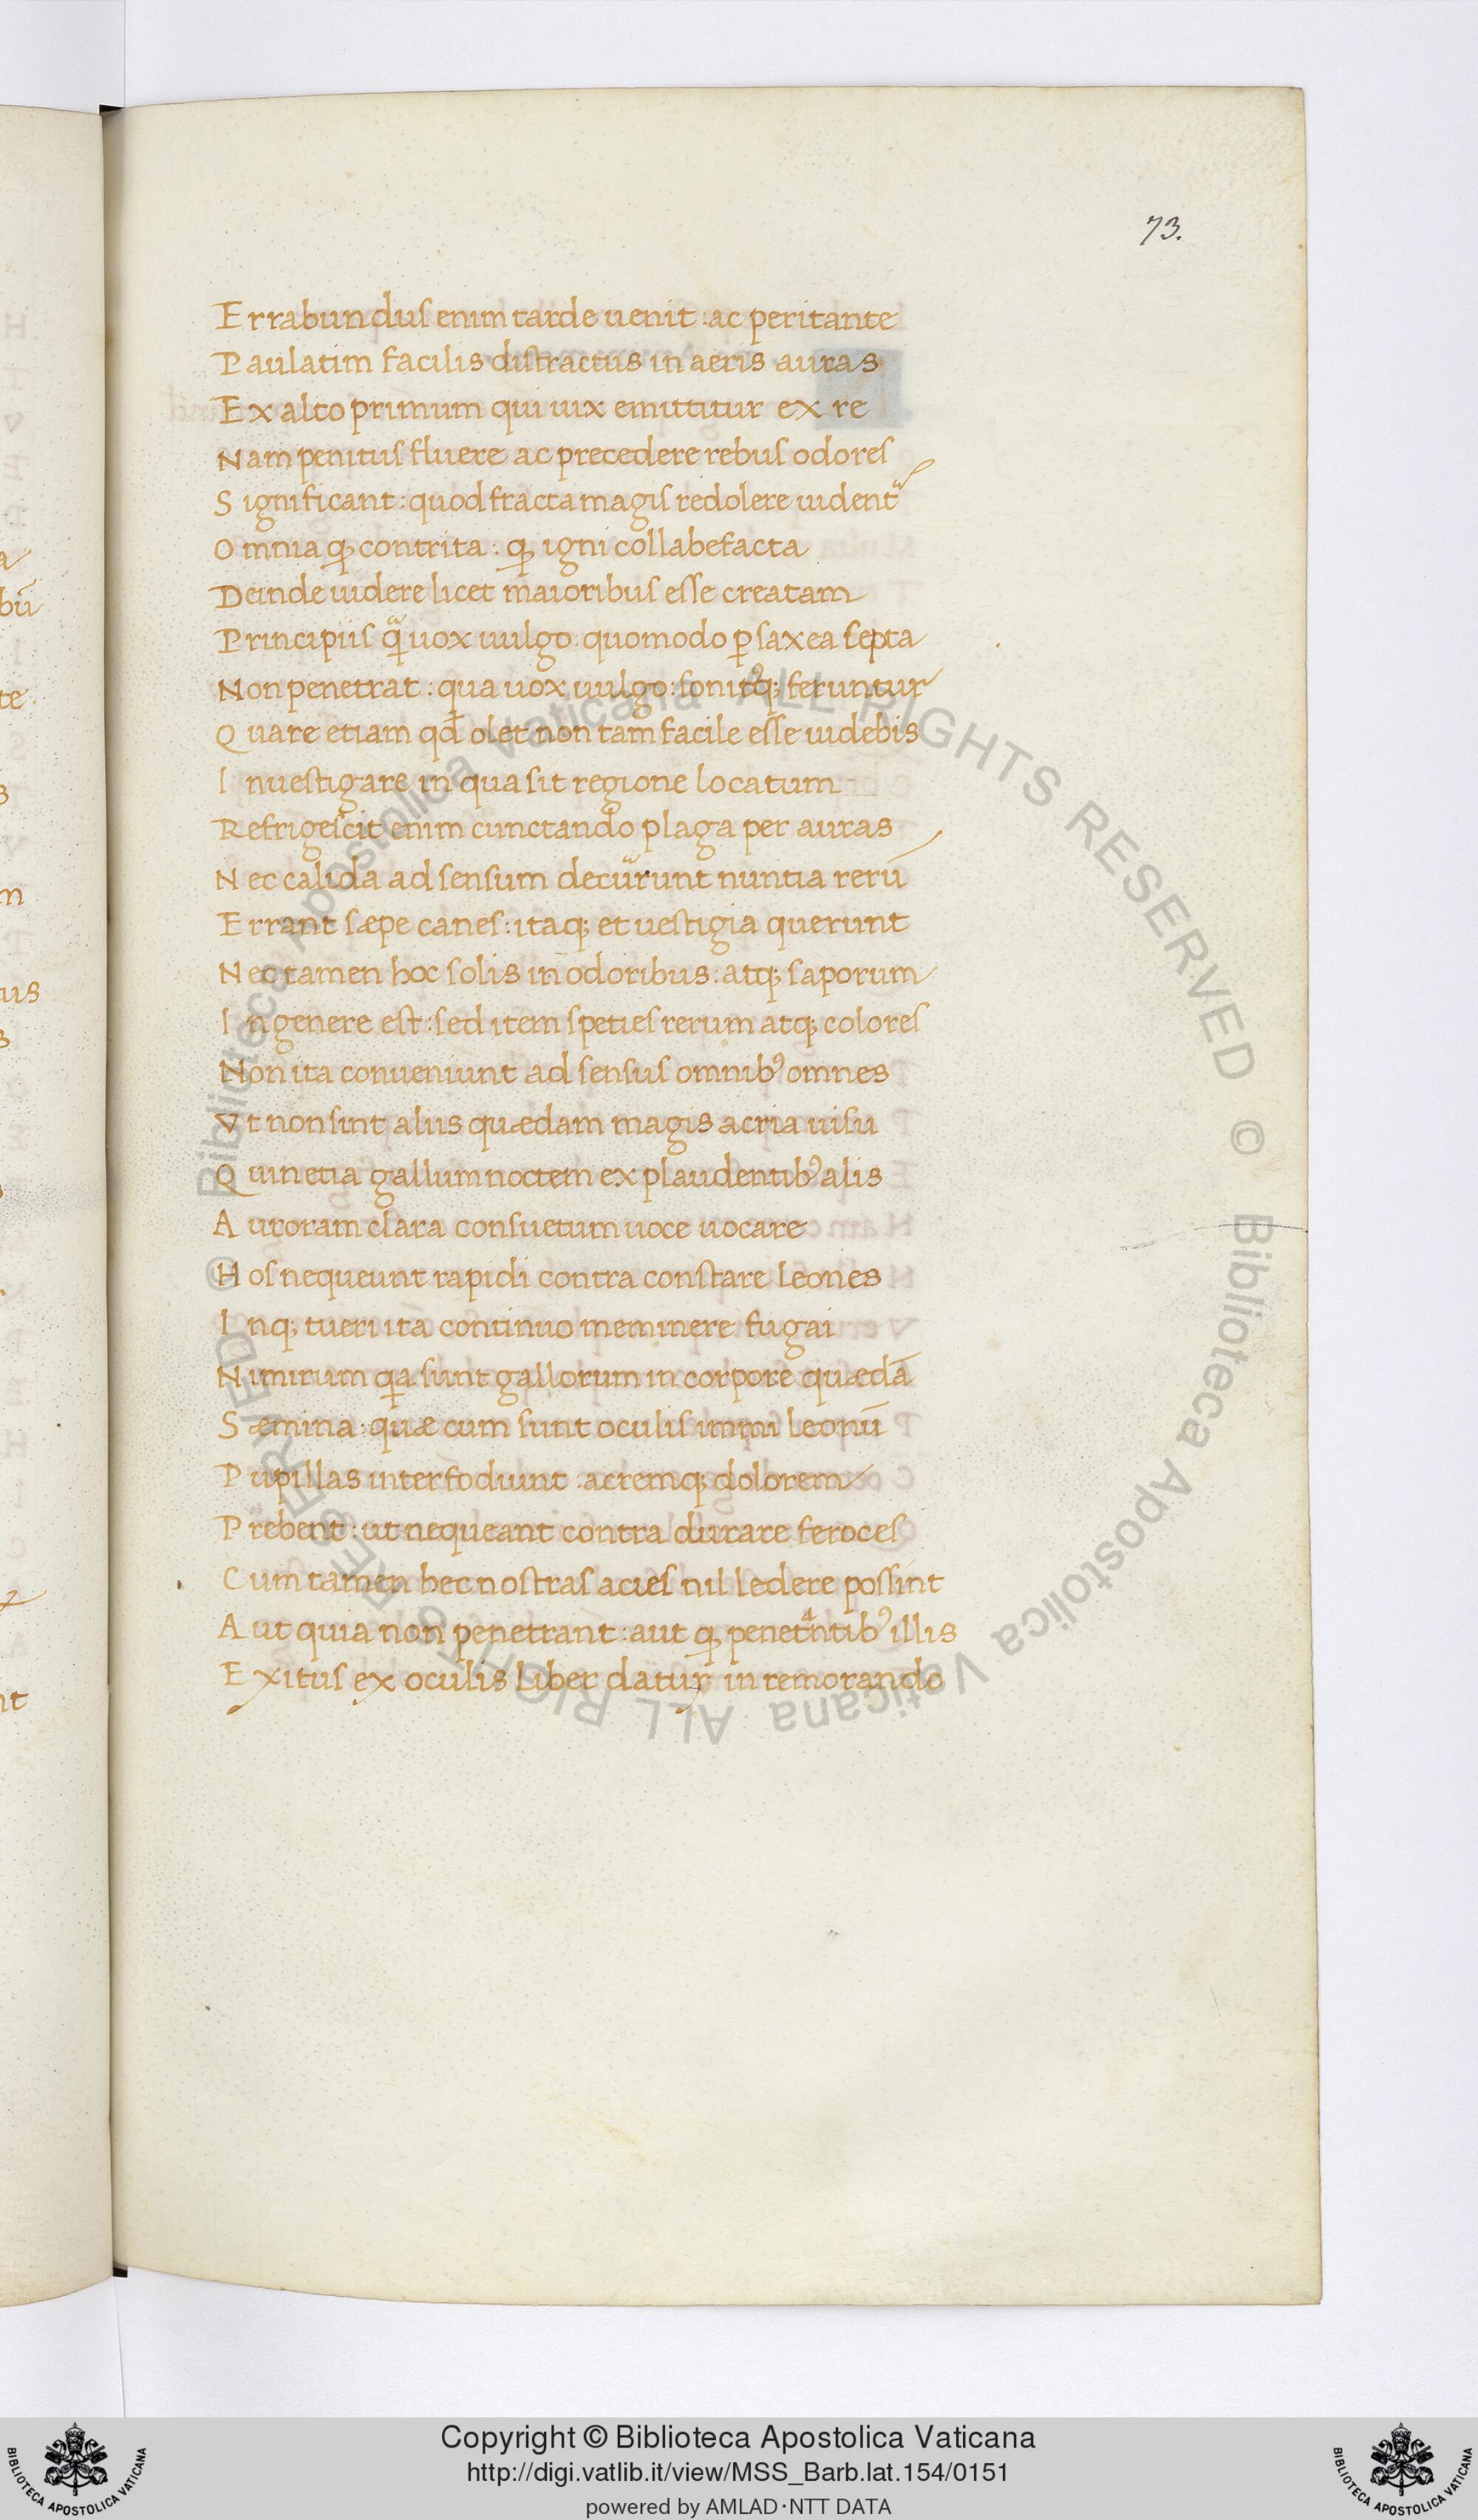 73.
Errabundus enim tarde uenit : ac peritante
Paulatim facilis distractus in aeris auras
Ex alto primum qui uix emittitur ex re
Nam penitus fluere ac precedere rebus odores
Significant : quod fracta magis redolere uident᷑
Omnia qꝫ contrita : qꝫ igni collabefacta
Deinde uidere licet maioribus esse creatam
Principiis q̃ uox uulgo quomodo ꝑ saxea septa
Non penetrat : qua uox uulgo : sonitꝰqꝫ feruntur
Quare etiam qđ olet non tam facile esse uidebis
Inuestigare in qua sit regione locatum
Refrigescit enim cunctando plaga per auras
Nec calida ad sensum decurrunt nuntia rerū
Errant sæpe canes : itaqꝫ et uestigia querunt
Nec tamen hoc solis in odoribus : atqꝫ saporum
In genere est : sed item speties rerum atqꝫ colores
Non ita conueniunt ad sensus omnibꝰ omnes
Vt non sint aliis quædam magis acria uisu
Quin etia gallum noctem explaudentibꝰ alis
Auroram clara consuetum uoce uocare
Hos nequeunt rapidi contra constare leones
Inqꝫ tueri ita continuo meminere fugai
Nimirum qa sunt gallorum in corpore quædā
Sæmina : quæ cum sunt oculis immi leonū
Pupillas interfodiunt : acremqꝫ dolorem
Prebent : ut nequeant contra durare feroces
Cum tamen hec nostras acies nil ledere possint
Aut quia non penetrant : aut qꝫ penetᵃntibꝰ illis
Exitus ex oculis liber datur in remorando
© Biblioteca Apostolica Vaticana ALL RIGHTS RESERVED © Biblioteca Apostolica Vaticana ALL RIGHTS RESERVED
Copyright © Biblioteca Apostolica Vaticana
http://digi.vatlib.it/view/MSS_Barb.lat.154/0151
powered by AMLAD·NTT DATA
BIBLIOTECA APOSTOLICA VATICANA
BIBLIOTECA APOSTOLICA VATICANA